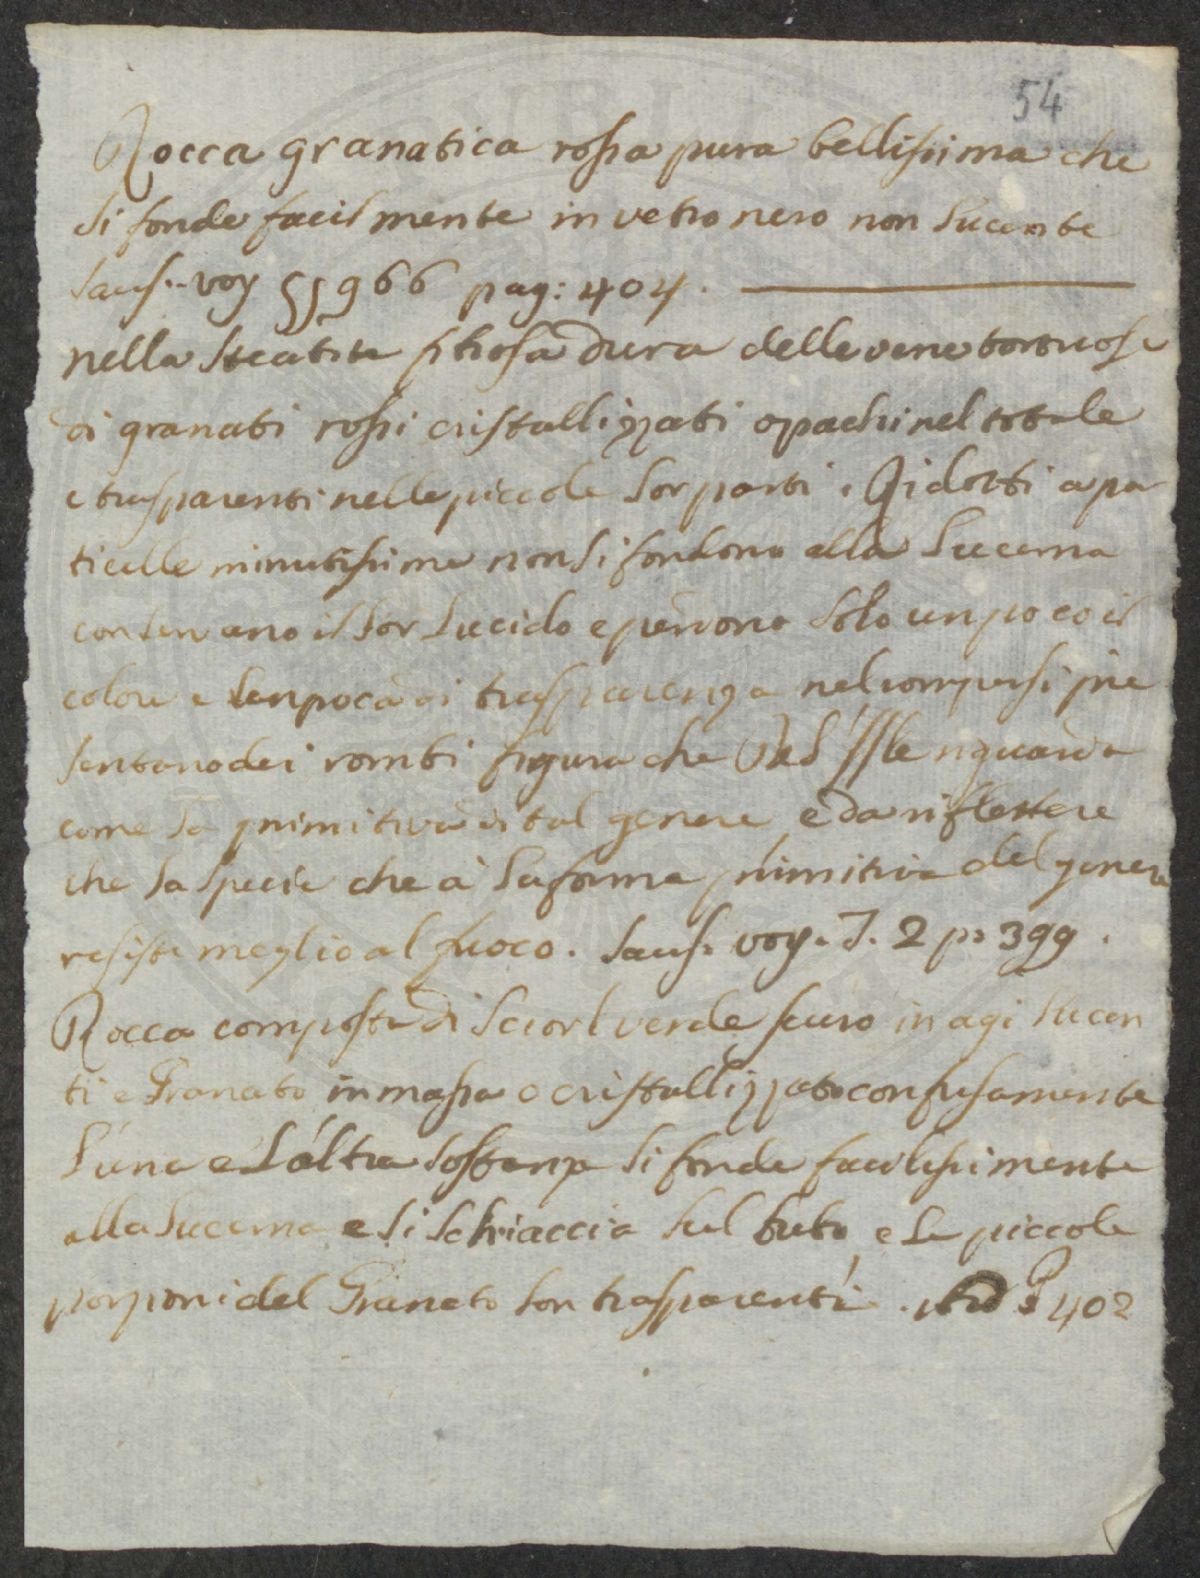 54
Rocca granatica rossa pura bellissima che
si fonde facilmente in vetro nero non lucente
Saus. voy §§ 966 pag: 404.
nella Steatite petrosa dura delle vene tortuose
di granati rossi cristallizzati opachi nel totale
e trasparenti nelle piccole lor parti. Ridotti a par
ticelle minutissime non si fondono alla lucerna
conservano il lor lucido e perdono solo un poco il
colore e un poca di trasparenza nel rompersi pre
sentano dei rombi figura che Del'Isle riguarda
come la primitiva di tal genere e da riflettere
che la specie che à la forma primitiva del genere
resiste meglio al fuoco. Saus. voy. T. 2 p. 399.
Rocca composta di Sciorl verde scuro in agi lucen
ti e Granato in massa o cristallizzato confusamente
L'una e L'altra sostanza si fonde facilissimente
alla lucerna e si schiaccia sul tubo e le piccole
porzioni del Granato son trasparenti. 402